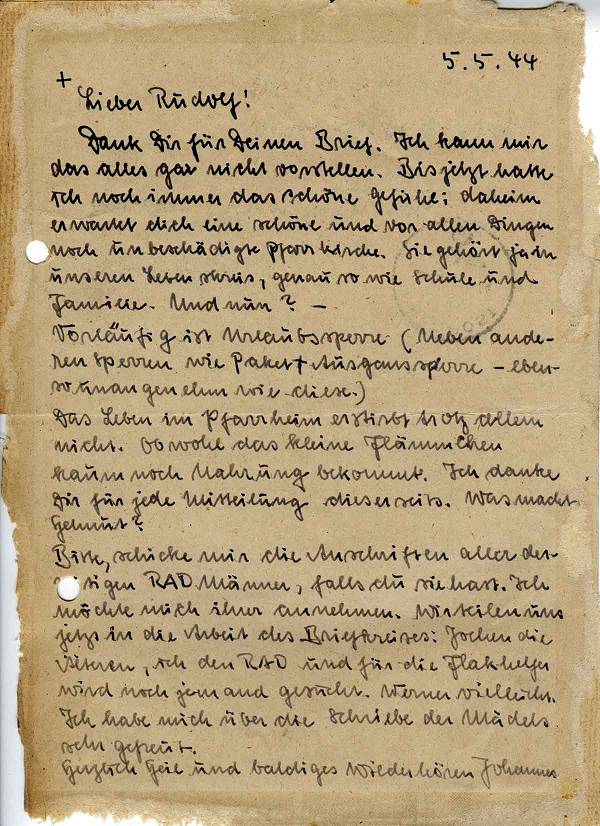 5.5.44
+
Lieber Rudolf!
Dank Dir für Deinen Brief. Ich kann mir
das alles gar nicht vorstellen. Bis jetzt hatte
ich noch immer das schöne Gefühl: daheim
erwartet dich eine schöne und vor allen Dingen
noch unbeschädigte Pfarrkirche. Sie gehört ja in
unseren Lebenskreis, genau so wie Schule und
Familie. Und nun? —
Vorläufig ist Urlaubssperre (Neben ande-
ren Sperren wie Paket + Ausgangssperre – eben-
so unangenehm wie diese.)
Das Leben im Pfarrheim erstirbt trotz allem
nicht. Obwohl das kleine Flämmchen
kaum noch Nahrung bekommt. Ich danke
Dir für jede Mitteilung dieserseits. Was macht
Helmut?
Bitte, schicke mir die Anschriften aller der-
zeitigen RAD Männer, falls du sie hast. Ich
möchte mich ihrer annehmen. Wir teilen uns
jetzt in die Arbeit des Briefkreises: Jochen die
Älteren, ich den RAD und für die Flakhelfer
wird noch jemand gesucht. Werner vielleicht.
Ich habe mich über die Schriebe der Mädels
sehr gefreut.
Herzlich Heil und baldiges Wiederhören Johannes